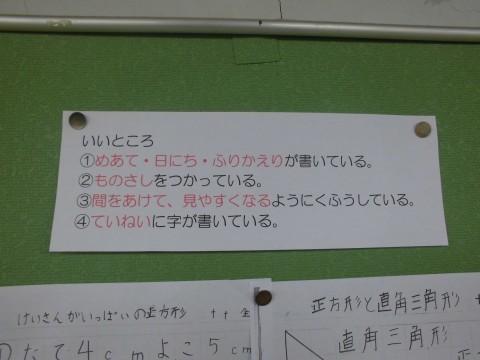 いいところ
①めあて・日にち・ふりかえりが書いている。
②ものさしをつかっている。
③間をあけて、見やすくなるようにくふうしている。
④ていねいに字が書いている。
けいさんがいっぱいの正方形
たて4cmよこ5cm
正方形と直角三角形
直角三角形